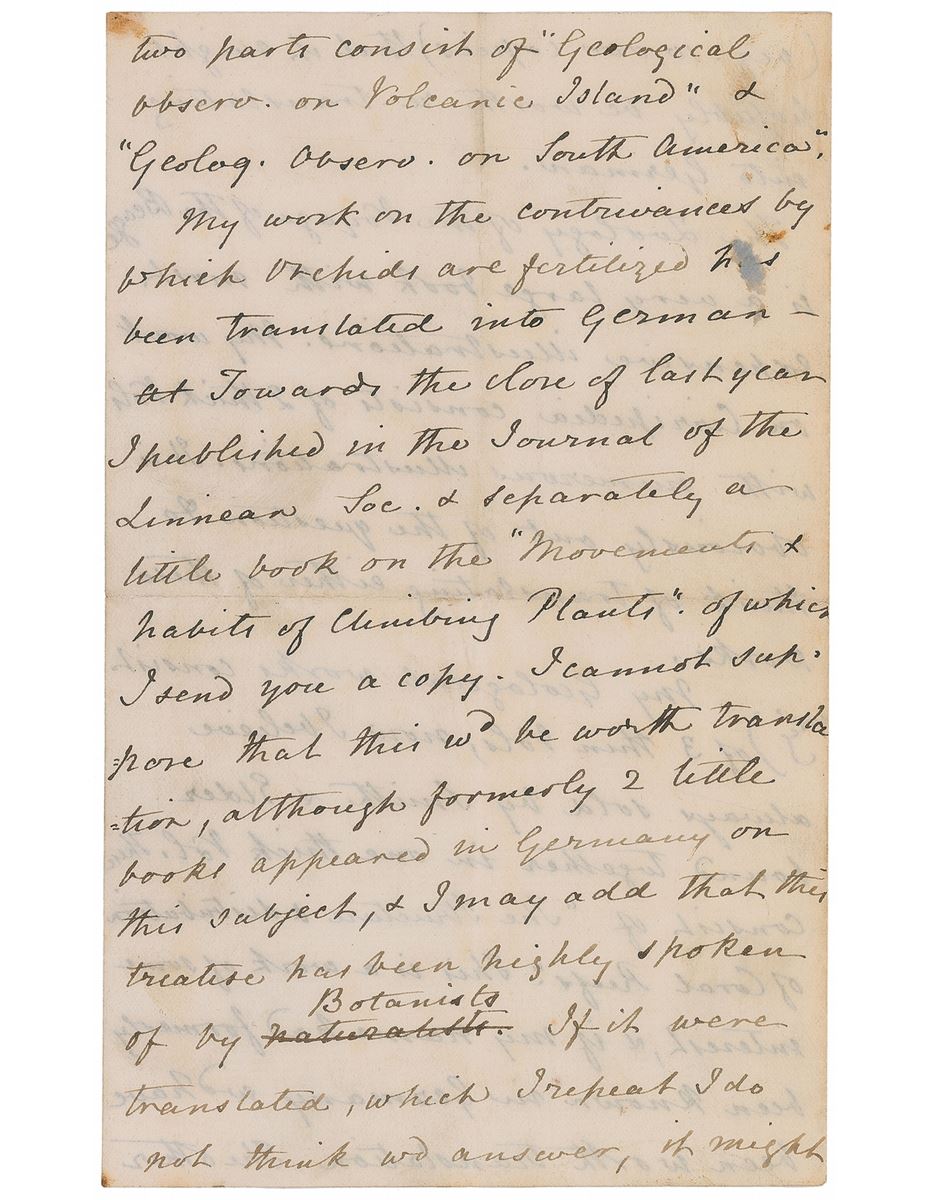 two parts consist of "Geological
observ. on Volcanic Island" &
"Geolog. Observ. on South America".
My work on the contrivances by
which Orchids are fertilized has
been translated into German –
at Towards the close of last year
I published in the Journal of the
Linnean Soc. & separately a
little book on the "Movements &
habits of Climbing Plants". of which
I send you a copy. I cannot sup-
=pose that this wd be worth transla
=tion, although formerly 2 little
books appeared in Germany on
this subject, & I may add that this
treatise has been highly spoken
Botanists
of by naturalists. If it were
translated, which I repeat I do
not think wd answer, it might